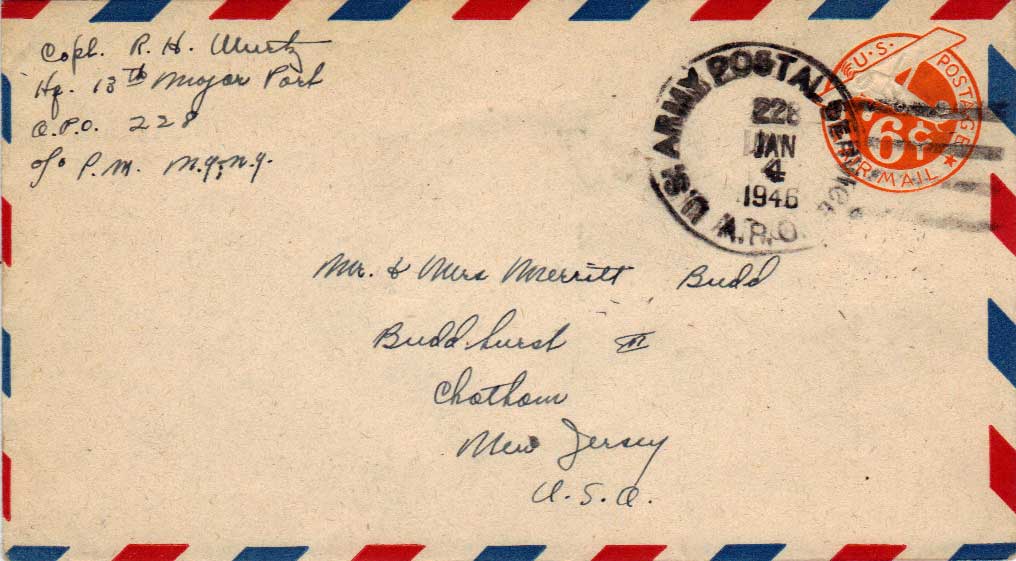 Capt. R. H. Wurtz
Hq. 13th Major Port
A.P.O. 228
c/o P.M. N.Y., N.Y.
U.S. ARMY POSTAL SERVICE
228
JAN
4
1946
A.P.O.
U.S. POSTAGE
6¢
AIR MAIL
Mr. & Mrs Merritt Budd
Buddhurst II
Chatham
New Jersey
U.S.A.